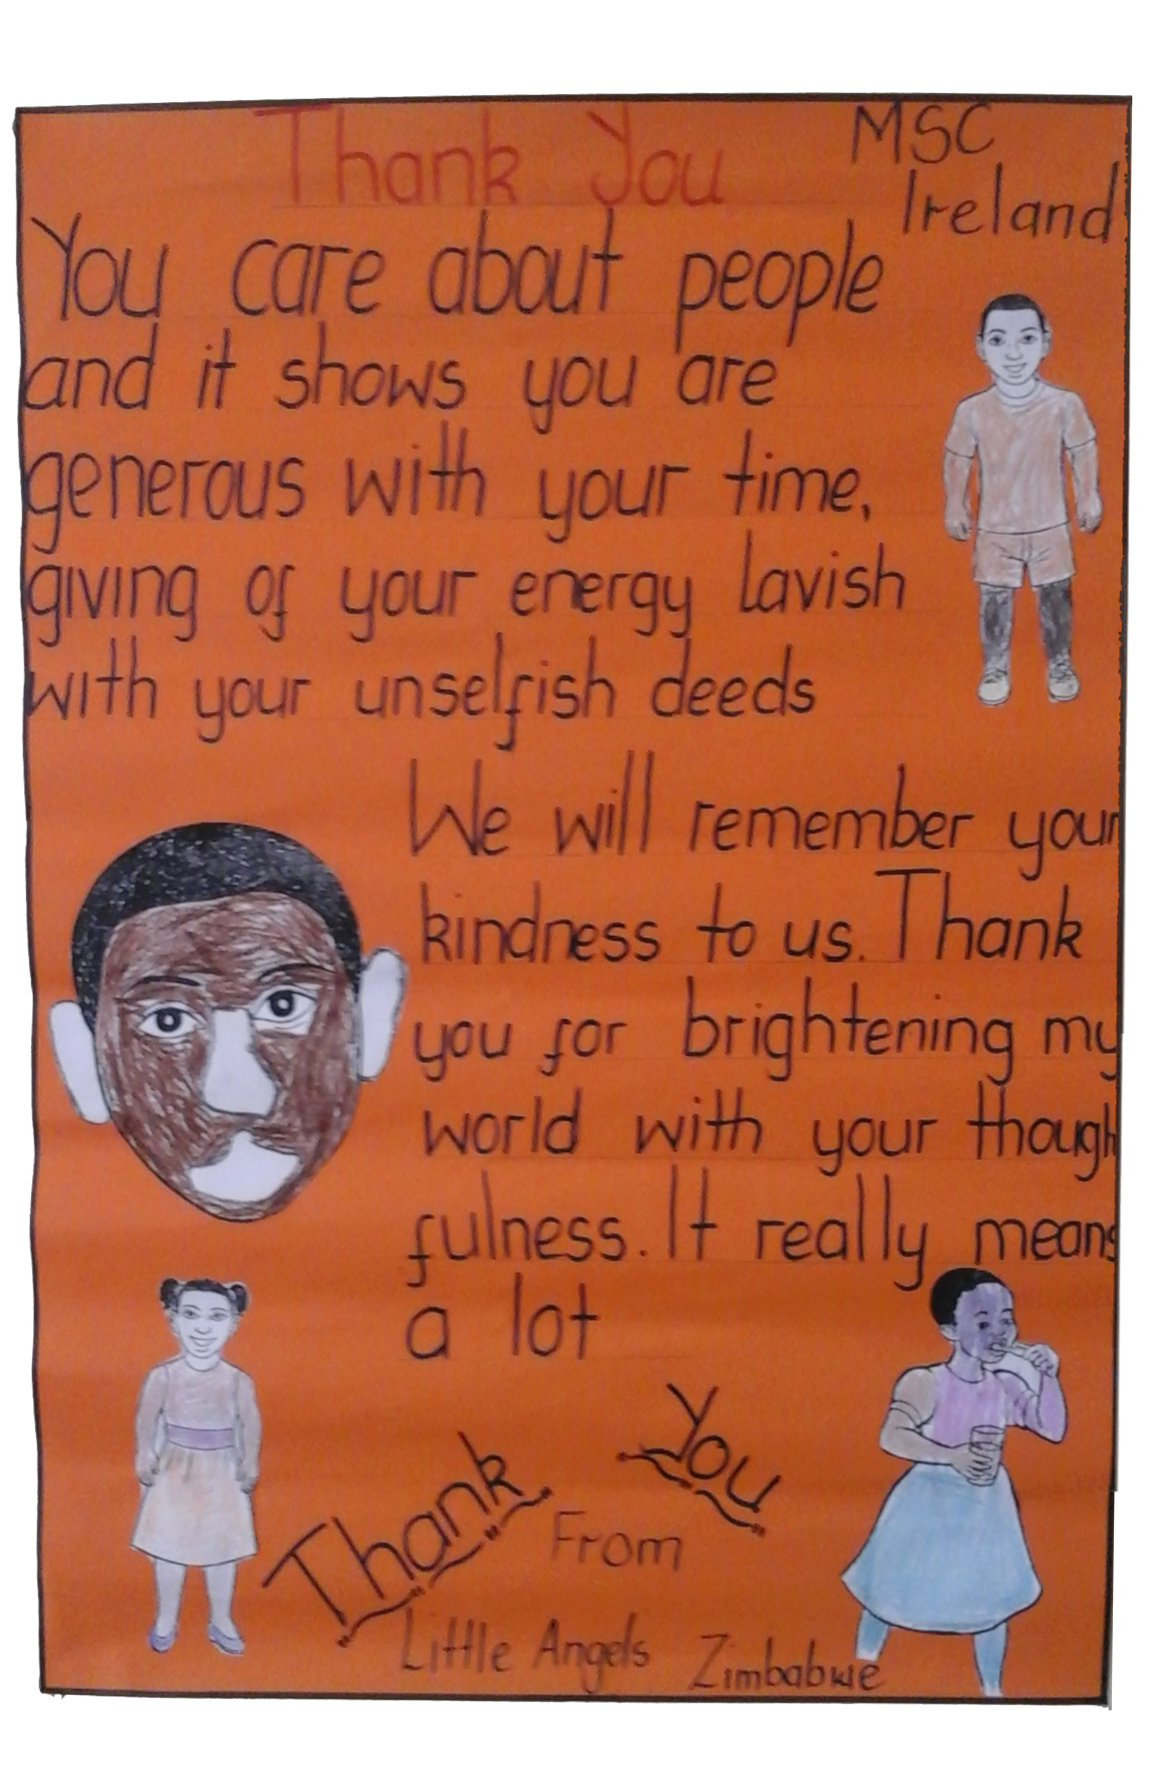 Thank You
MSC
Ireland
You care about people
and it shows you are
generous with your time,
giving of your energy lavish
with your unselfish deeds
We will remember your
kindness to us. Thank
you for brightening my
world with your though
fulness. It really means
a lot
Thank You
From
Little Angels Zimbabwe